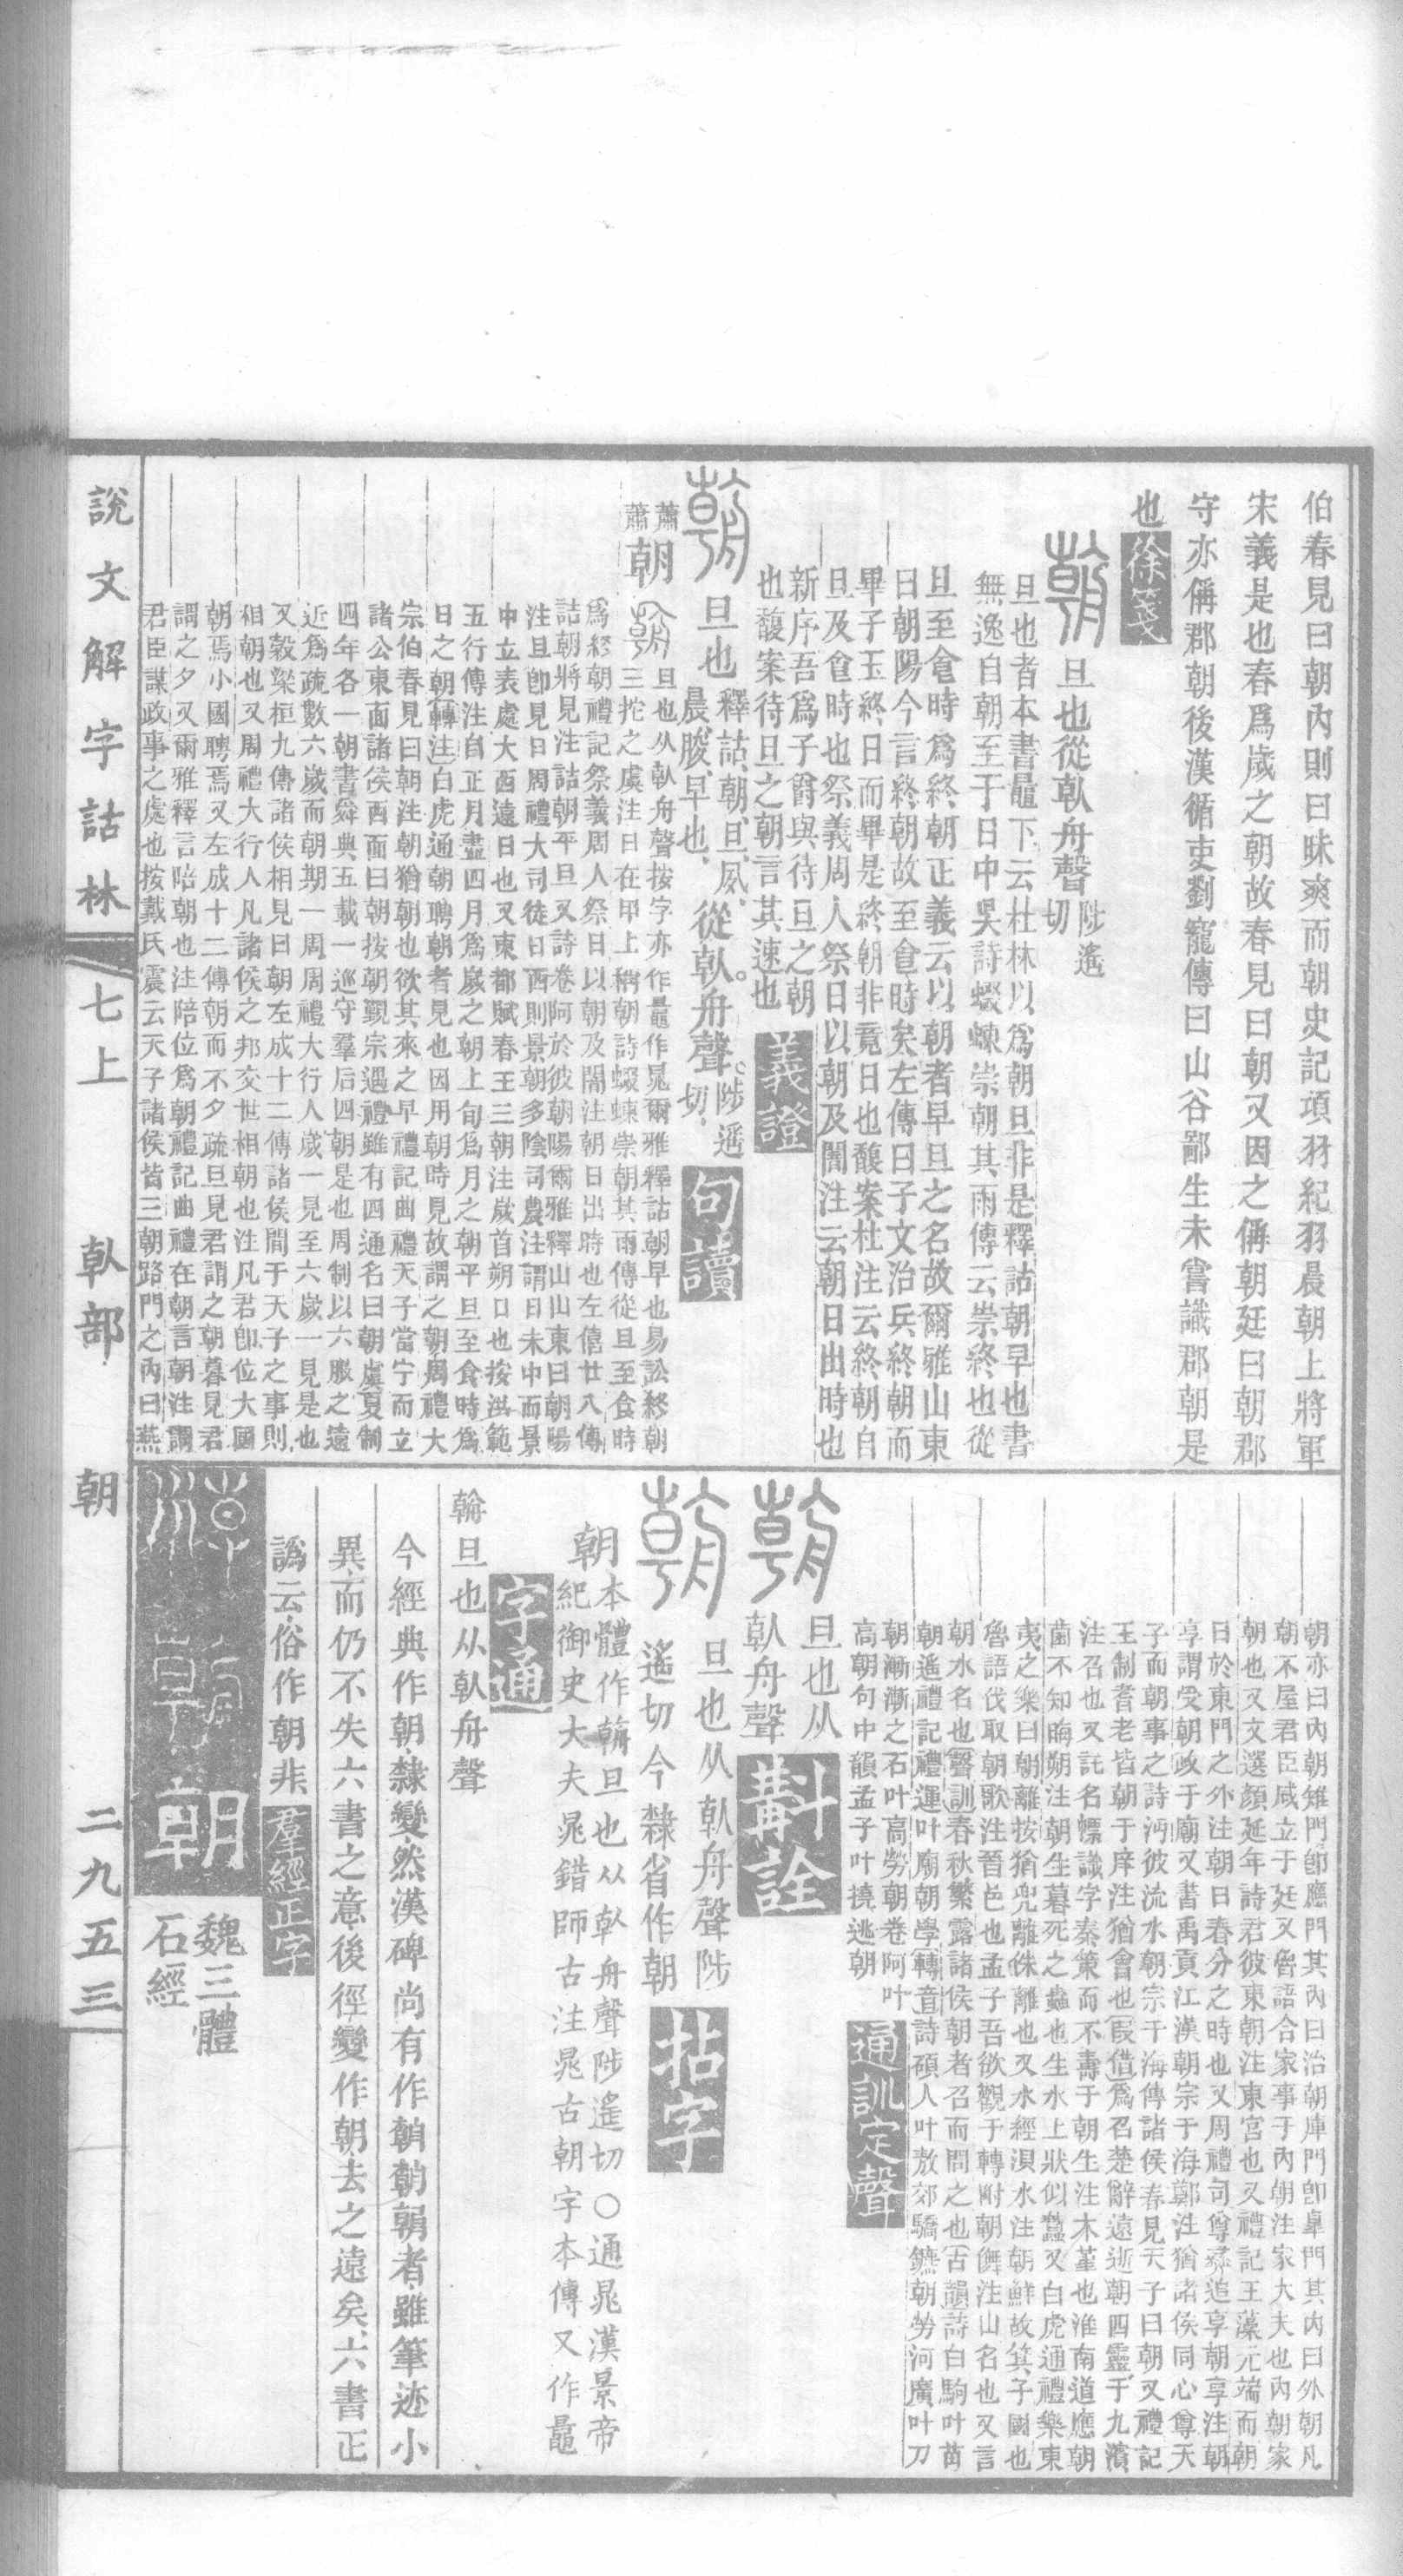 伯春見曰朝內則曰昧爽而朝史記項羽紀羽晨朝上將軍
宋義是也春爲歲之朝故春見曰朝又因之偁朝廷曰朝郡
守亦偁郡朝後漢循吏劉寵傳曰山谷鄙生未嘗識郡朝是
也徐箋
旦也從倝舟聲陟遙切
旦也者本書鼂下云杜林以爲朝旦非是釋詁朝早也書
無逸自朝至于日中昃詩蝃蝀崇朝其雨傳云崇終也從
旦至食時爲終朝正義云以朝者早旦之名故爾雅山東
曰朝陽今言終朝故至食時矣左傳曰子文治兵終朝而
畢子玉終日而畢是終朝非竟日也馥案杜注云終朝自
旦及食時也祭義周人祭日以朝及闇注云朝日出時也
新序吾爲子爵與待旦之朝
也馥案待旦之朝言其速也義證
旦也釋詁朝、旦、夙、晨、朘、早也、從倝。舟聲。陟遙切、句讀
蕭蕭朝旦也从倝舟聲按字亦作鼂作晁爾雅釋詁朝早也易訟終朝
三拕之虞注日在甲上稱朝詩蝃蝀崇朝其雨傳從旦至食時
爲終朝禮記祭義周人祭日以朝及闇注朝日出時也左僖廿八傳
詰朝將見注詰朝平旦又詩卷阿於彼朝陽爾雅釋山山東曰朝陽
注旦卽見日周禮大司徒日西則景朝多陰司農注謂日未中而景
中立表處大西遠日也又東都賦春王三朝注歲首朔日也按洪範
五行傳注自正月盡四月爲歲之朝上旬爲月之朝平旦至食時爲
日之朝轉注白虎通朝聘朝者見也因用朝時見故謂之朝周禮大
宗伯春見曰朝注朝猶朝也欲其來之早禮記曲禮天子當宁而立
諸公東面諸侯西面曰朝按朝覲宗遇禮雖有四通名曰朝虞夏制
四年各一朝書舜典五載一巡守羣后四朝是也周制以六服之遠
近爲疏數六歲而朝期一周周禮大行人歲一見至六歲一見是也
又穀梁桓九傳諸侯相見曰朝左成十二傳諸侯閒于天子之事則
相朝也又周禮大行人凡諸侯之邦交世相朝也注凡君卽位大國
朝焉小國聘焉又左成十二傳朝而不夕疏旦見君謂之朝暮見君
謂之夕又爾雅釋言陪朝也注陪位爲朝禮記曲禮在朝言朝注謂
君臣謀政事之處也按戴氏震云天子諸侯皆三朝路門之內曰燕
朝亦曰內朝雉門卽應門其內曰治朝庫門卽皐門其內曰外朝凡
朝不屋君臣咸立于廷又魯語合家事于內朝注家大夫也內朝家
朝也又文選顏延年詩君彼東朝注東宮也又禮記王藻元端而朝
日於東門之外注朝日春分之時也又周禮司尊彞追享朝享注朝
享謂受朝政于廟又書禹貢江漢朝宗于海鄭注猶諸侯同心尊天
子而朝事之詩沔彼流水朝宗于海傳諸侯春見天子曰朝又禮記
王制耆老皆朝于庠注猶會也叚借爲召楚辭遠逝朝四靈于九濱
注召也又託名幖識字秦策而不壽于朝生注木堇也淮南道應朝
菌不知晦朔注朝生暮死之蟲也生水上狀似蠶又白虎通禮樂東
夷之樂曰朝離按猶兜離侏離也又水經浿水注朝鮮故箕子國也
魯語伐取朝歌注晉邑也孟子吾欲觀于轉附朝儛注山名也又言
朝水名也聲訓春秋繁露諸侯朝者召而問之也古韻詩白駒叶苗
朝遙禮記禮運叶廟朝學轉音詩碩人叶敖郊驕鑣朝勞河廣叶刀
朝漸漸之石叶高勞朝卷阿叶
高朝句中韻孟子叶撓逃朝通訓定聲
旦也从倝舟聲斠詮
旦也从倝舟聲陟遙切今隸省作朝拈字
朝本體作䡣旦也从倝舟聲陟遙切○通晁漢景帝
紀御史大夫晁錯師古注晁古朝字本傳又作鼂
字通
䡣旦也从倝舟聲
今經典作朝、隸變然漢碑尚有作者、雖筆迹小
異、而仍不失六書之意、後徑變作朝、去之遠矣、六書正
譌云、俗作朝非羣經正字
朝
魏三體
石經
說文解字詁林
七上
倝部
朝
二九五三